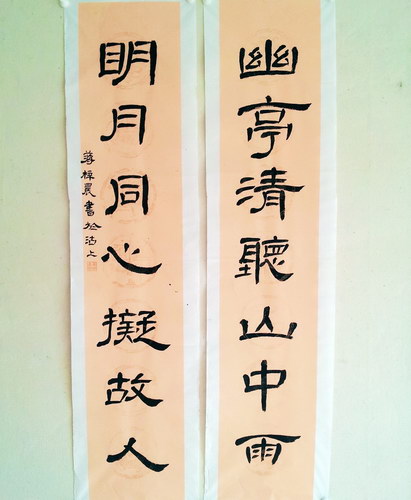 幽亭清聽山中雨
明月同心擬故人
蔣梓晨書於沽上